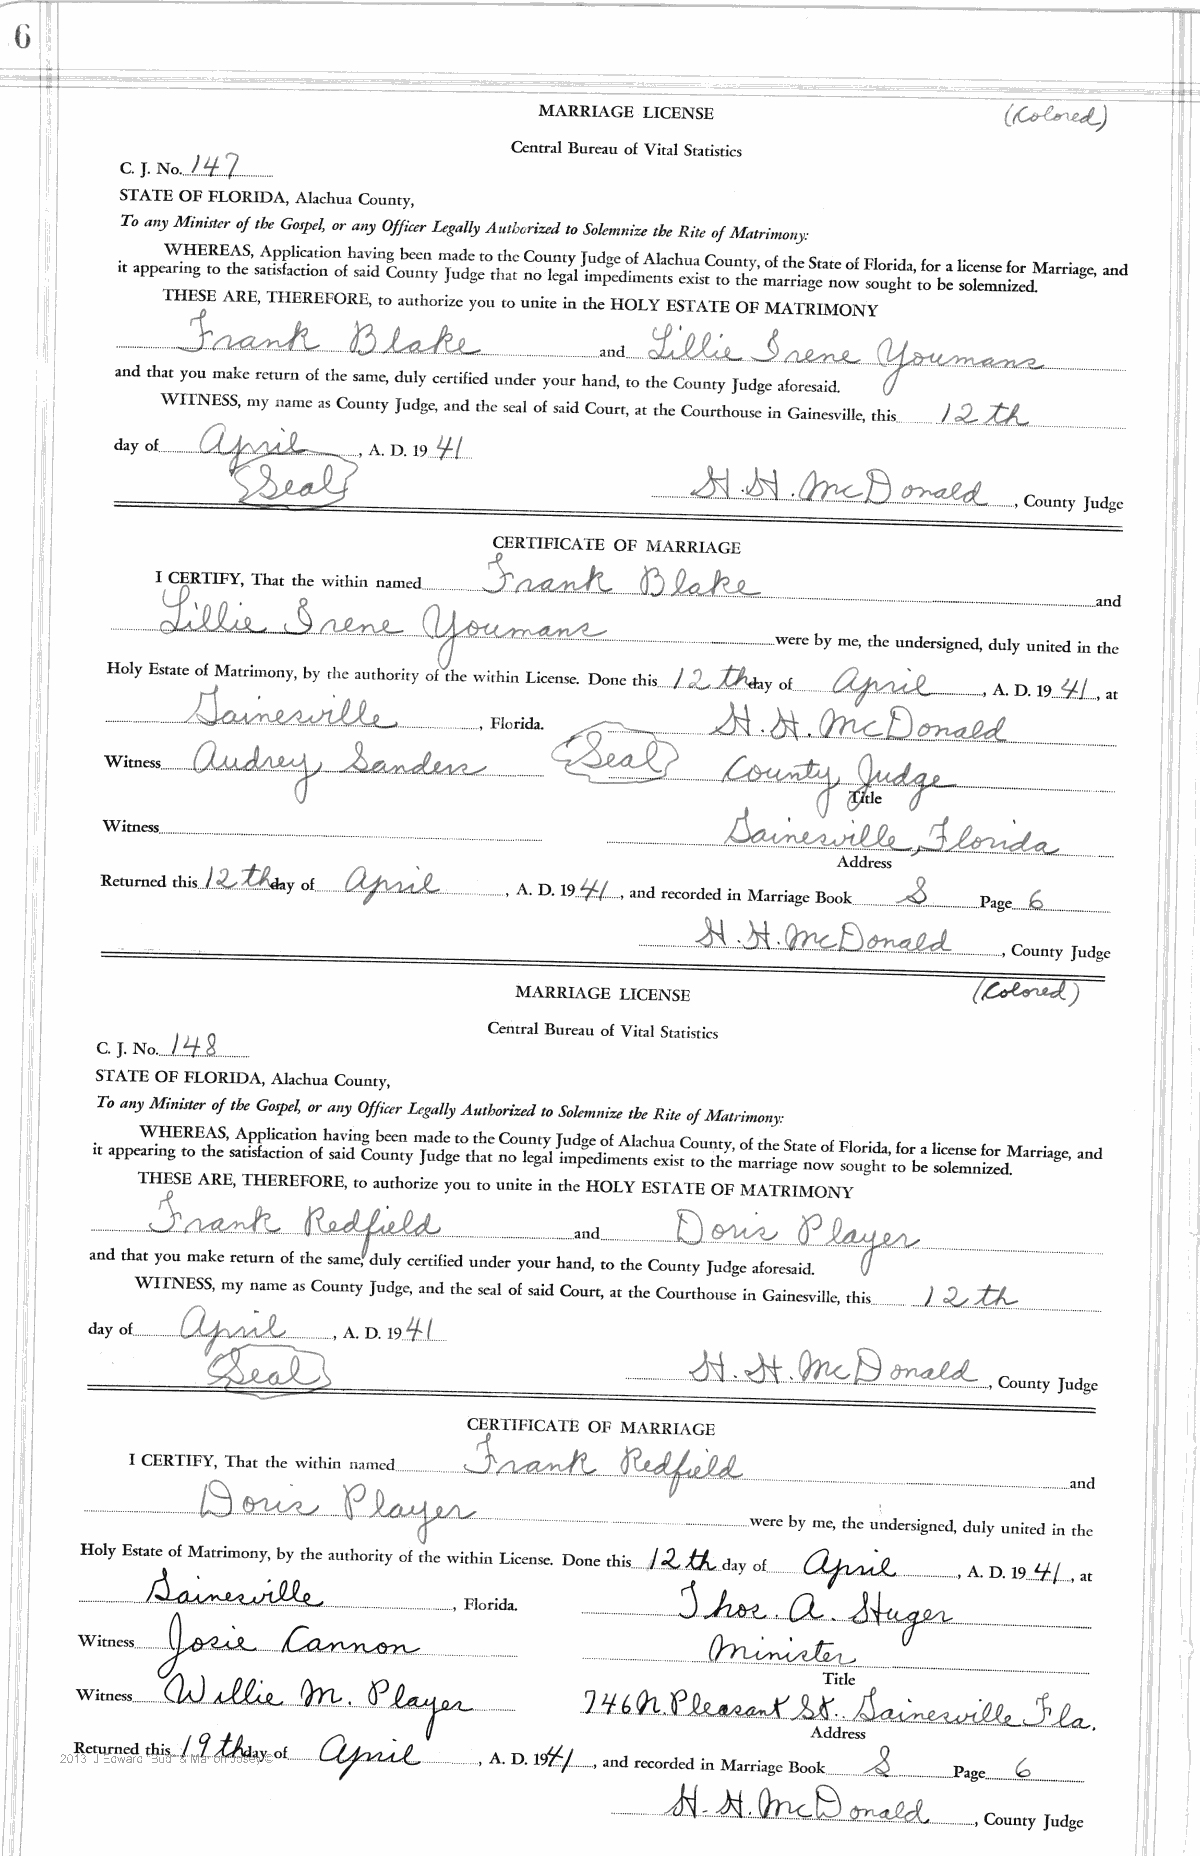 6
MARRIAGE LICENSE (Colored)
Central Bureau of Vital Statistics
C. J. No. 147
STATE OF FLORIDA, Alachua County,
To any Minister of the Gospel, or any Officer Legally Authorized to Solemnize the Rite of Matrimony:
WHEREAS, Application having been made to the County Judge of Alachua County, of the State of Florida, for a license for Marriage, and
it appearing to the satisfaction of said County Judge that no legal impediments exist to the marriage now sought to be solemnized.
THESE ARE, THEREFORE, to authorize you to unite in the HOLY ESTATE OF MATRIMONY
Frank Blake and Lillie Irene Youmans
and that you make return of the same, duly certified under your hand, to the County Judge aforesaid.
WITNESS, my name as County Judge, and the seal of said Court, at the Courthouse in Gainesville, this 12th
day of April, A. D. 1941
Seal H. H. McDonald, County Judge
CERTIFICATE OF MARRIAGE
I CERTIFY, That the within named Frank Blake and
Lillie Irene Youmans were by me, the undersigned, duly united in the
Holy Estate of Matrimony, by the authority of the within License. Done this 12th day of April, A. D. 1941, at
Gainesville, Florida. H. H. McDonald
Witness Audrey Sanders Seal County Judge
Title
Witness Gainesville, Florida
Address
Returned this 12th day of April, A. D. 1941, and recorded in Marriage Book S Page 6
H. H. McDonald, County Judge
MARRIAGE LICENSE (Colored)
Central Bureau of Vital Statistics
C. J. No. 148
STATE OF FLORIDA, Alachua County,
To any Minister of the Gospel, or any Officer Legally Authorized to Solemnize the Rite of Matrimony:
WHEREAS, Application having been made to the County Judge of Alachua County, of the State of Florida, for a license for Marriage, and
it appearing to the satisfaction of said County Judge that no legal impediments exist to the marriage now sought to be solemnized.
THESE ARE, THEREFORE, to authorize you to unite in the HOLY ESTATE OF MATRIMONY
Frank Redfield and Doris Player
and that you make return of the same, duly certified under your hand, to the County Judge aforesaid.
WITNESS, my name as County Judge, and the seal of said Court, at the Courthouse in Gainesville, this 12th
day of April, A. D. 1941
Seal H. H. McDonald, County Judge
CERTIFICATE OF MARRIAGE
I CERTIFY, That the within named Frank Redfield and
Doris Player were by me, the undersigned, duly united in the
Holy Estate of Matrimony, by the authority of the within License. Done this 12th day of April, A. D. 1941, at
Gainesville, Florida. Thos. A. Huger
Witness Josie Cannon Minister
Title
Witness Willie M. Player 746 N. Pleasant St. Gainesville Fla.
Address
Returned this 19th day of April, A. D. 1941, and recorded in Marriage Book S Page 6
2013 J Edward "Bud"
H. H. McDonald, County Judge